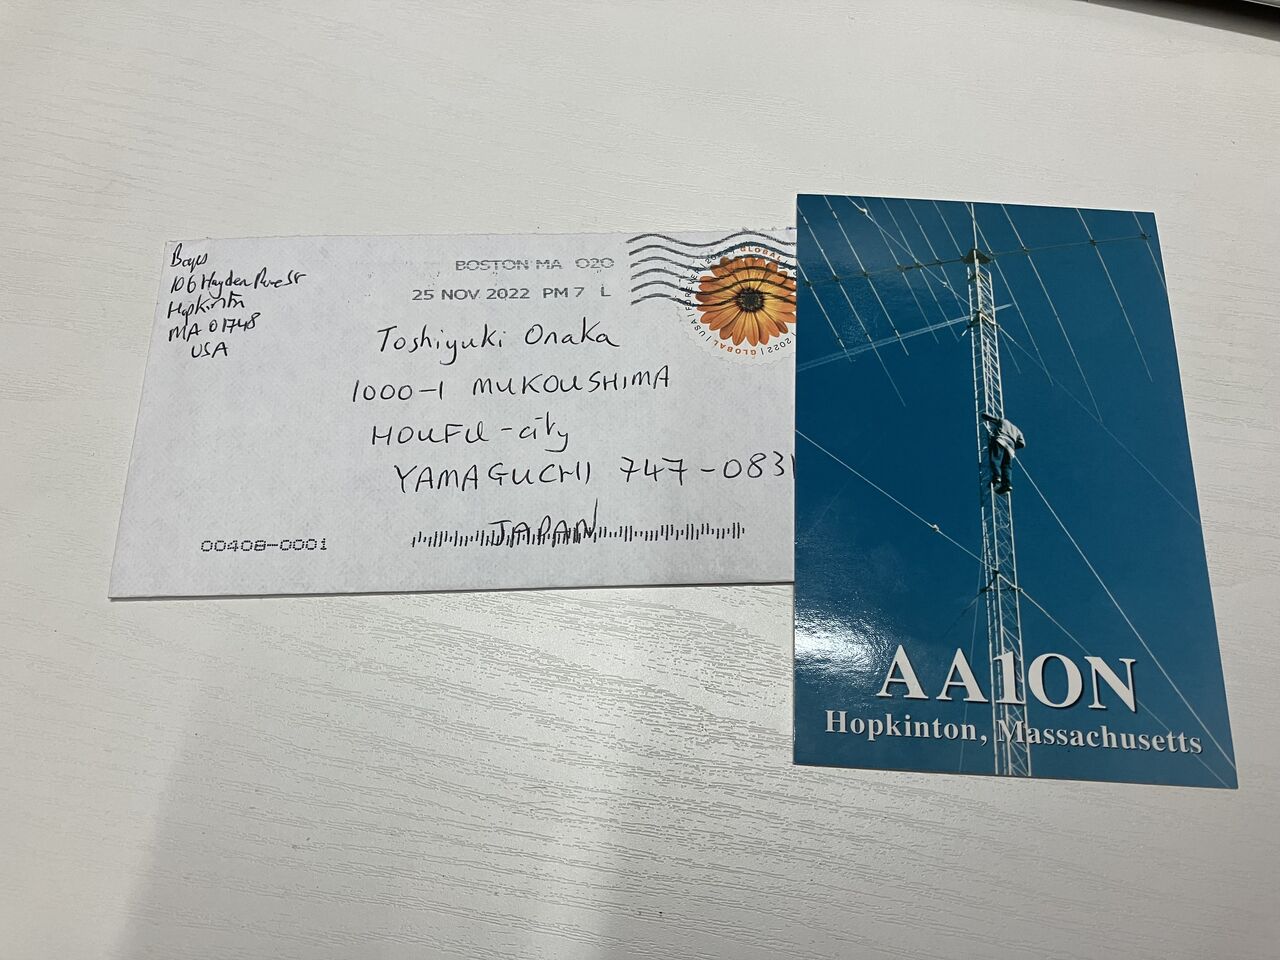 Bayes
106 Hayden Rowe St
Hopkinton
MA 01748
USA
BOSTON MA 020
25 NOV 2022 PM 7 L
GLOBAL | USA | FOREVER | 2022 | GLOBAL
Toshiyuki Onaka
1000-1 MUKOUSHIMA
HOUFU-city
YAMAGUCHI 747-0831
JAPAN
00408-0001
AA1ON
Hopkinton, Massachusetts